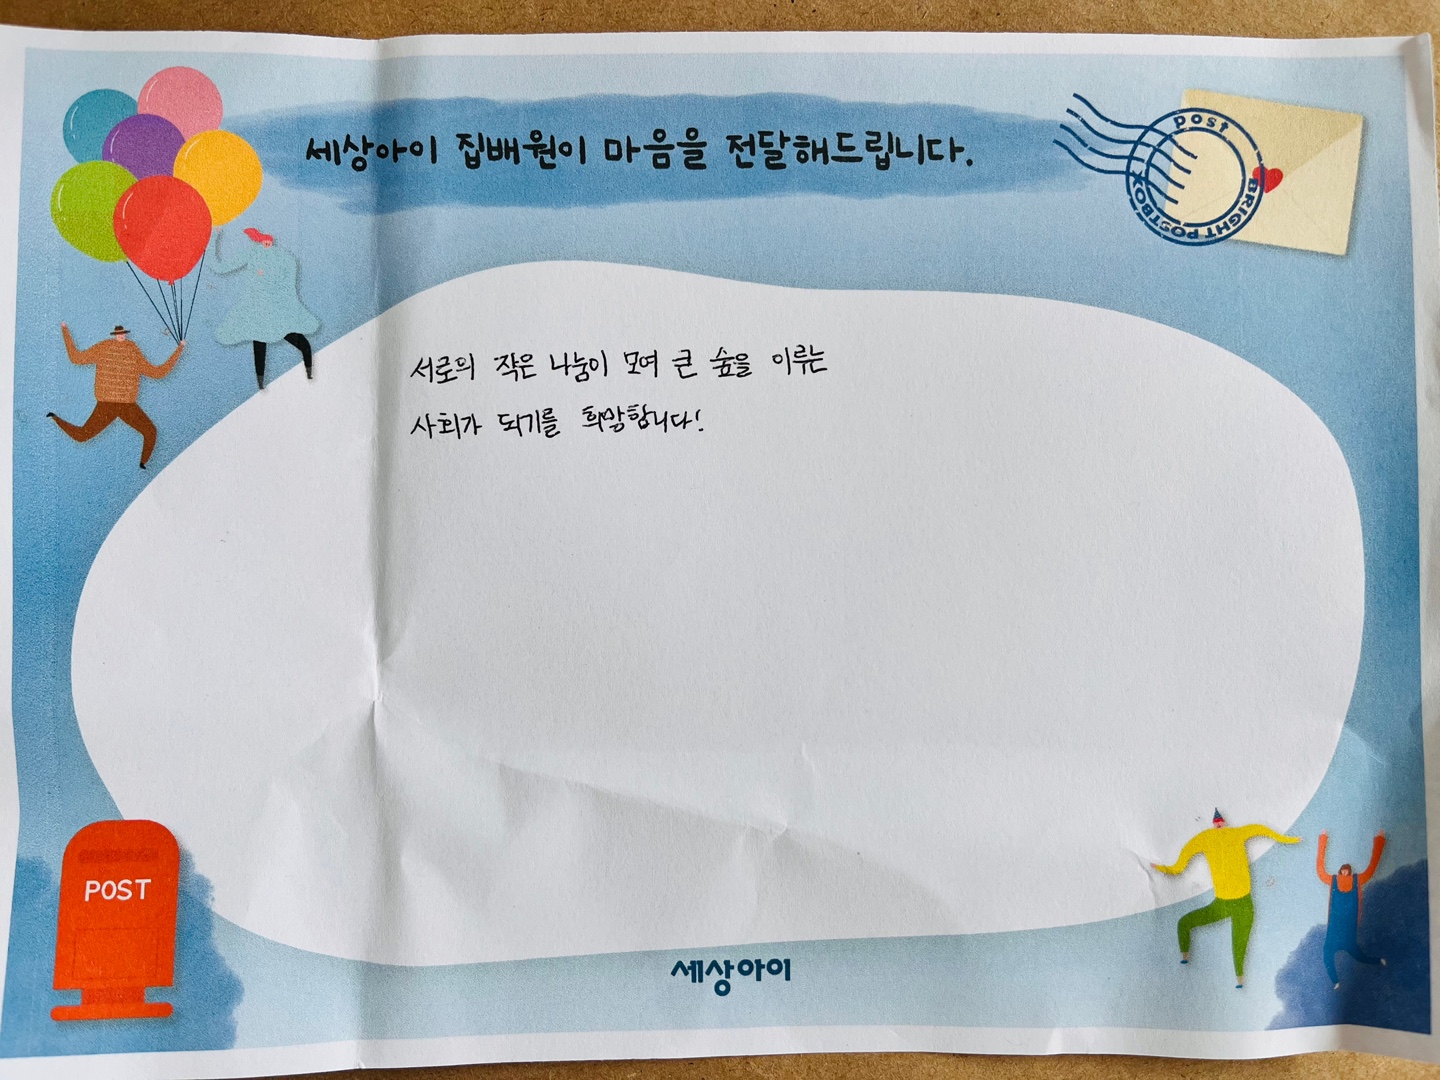 세상아이 집배원이 마음을 전달해드립니다.
post
BRIGHT POSTBOX
서로의 작은 나눔이 모여 큰 숲을 이루는
사회가 되기를 희망합니다!
POST
세상아이